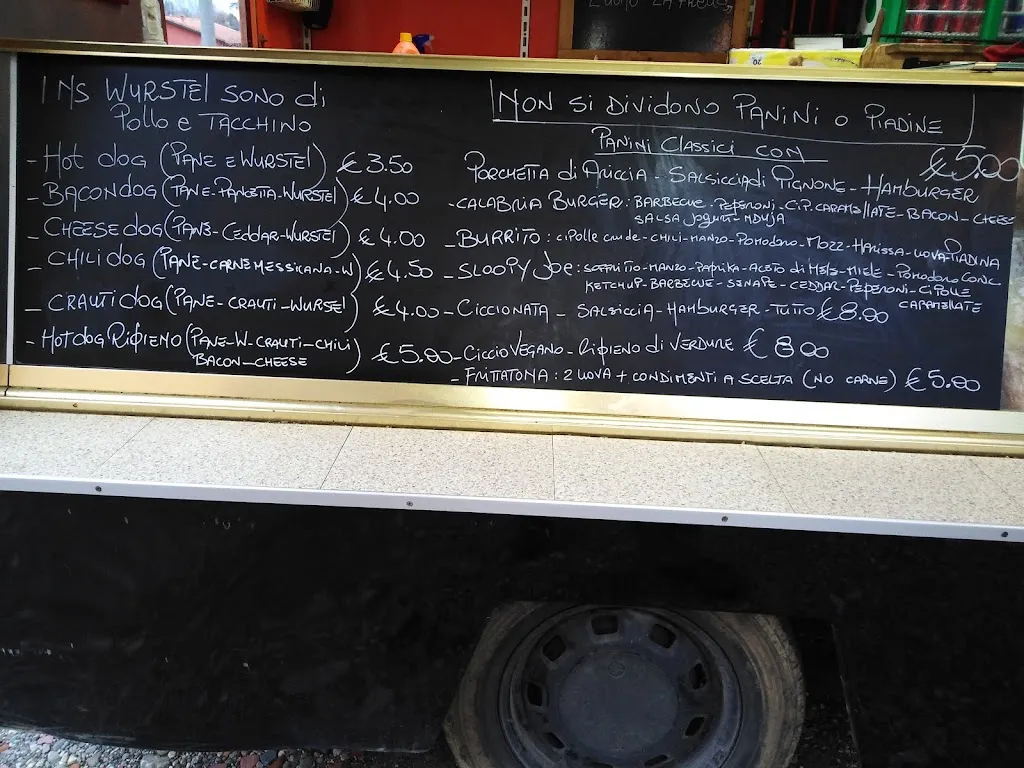 I NS WURSTEL SONO di
Pollo e TACCHINO
- HOT dog (PANE E WURSTEL) € 3.50
- BACONDOG (PANE-PANCETTA-WURSTEL) € 4.00
- CHEESEDOG (PANE-CEDDAR-WURSTEL) € 4.00
- CHILI DOG (PANE-CARNE MESSICANA-W) € 4.50
- CRAUTI DOG (PANE-CRAUTI-WURSTEL) € 4.00
- HOT dog RIPIENO (PANE-W-CRAUTI-CHILI
BACON-CHEESE) € 5.00
NON SI DIVIDONO PANINI O PIADINE
PANINI CLASSICI CON € 5.00
PORCHETTA di ARICCIA - SALSICCIA di PIGNONE - HAMBURGER
- CALABRIA BURGER: BARBECUE-PEPERONI-CIP.CARAMELLATE-BACON-CHEESE
SALSA JOGURT-NDUJA
- BURRITO: CIPOLLE CRUDE-CHILI-MANZO-POMODORO-MOZZ-HARISSA-UOVA-PIADINA
- SLOOPY JOE: SOFFRITTO-MANZO-PAPRIKA-ACETO di MELE-MIELE-POMODORO CONC
KETCHUP-BARBECUE-SENAPE-CEDDAR-PEPERONI-CIPOLLE
CARAMELLATE
- CICCIONATA - SALSICCIA-HAMBURGER-TUTTO € 8.00
- CICCIO VEGANO - RIPIENO di VERDURE € 8.00
- FRITTATONA: 2 UOVA + CONDIMENTI A SCELTA (NO CARNE) € 5.00